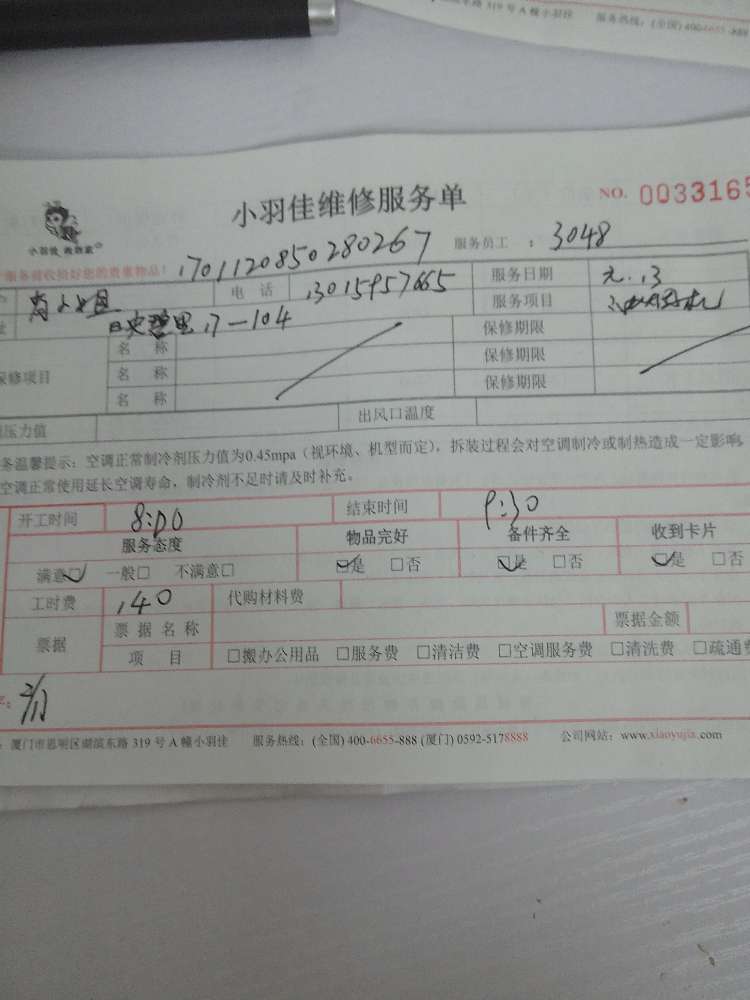 319 号 A 幢小羽佳 服务热线：(全国) 400-6655-888
小羽佳维修服务单
NO. 0033165
小羽佳
服务前收拾好您的贵重物品！
1701120850280267
服务员工 ： 3048
小姐 电 话 13015957665 服务日期 元.13
17-104 服务项目
保修项目 名 称 保修期限
名 称 保修期限
名 称 保修期限
压力值 出风口温度
务温馨提示：空调正常制冷剂压力值为0.45mpa（视环境、机型而定），拆装过程会对空调制冷或制热造成一定影响，
空调正常使用延长空调寿命，制冷剂不足时请及时补充。
开工时间 8:00 结束时间 9:30
服务态度 物品完好 备件齐全 收到卡片
满意☑ 一般□ 不满意□ ☑是 □否 ☑是 □否 ☑是 □否
工时费 140 代购材料费
票据 票 据 名 称 票据金额
项 目 □搬办公用品 □服务费 □清洁费 □空调服务费 □清洗费 □疏通费
：厦门市思明区湖滨东路 319 号 A 幢小羽佳 服务热线：(全国) 400-6655-888 (厦门) 0592-5178888 公司网站：www.xiaoyujia.com